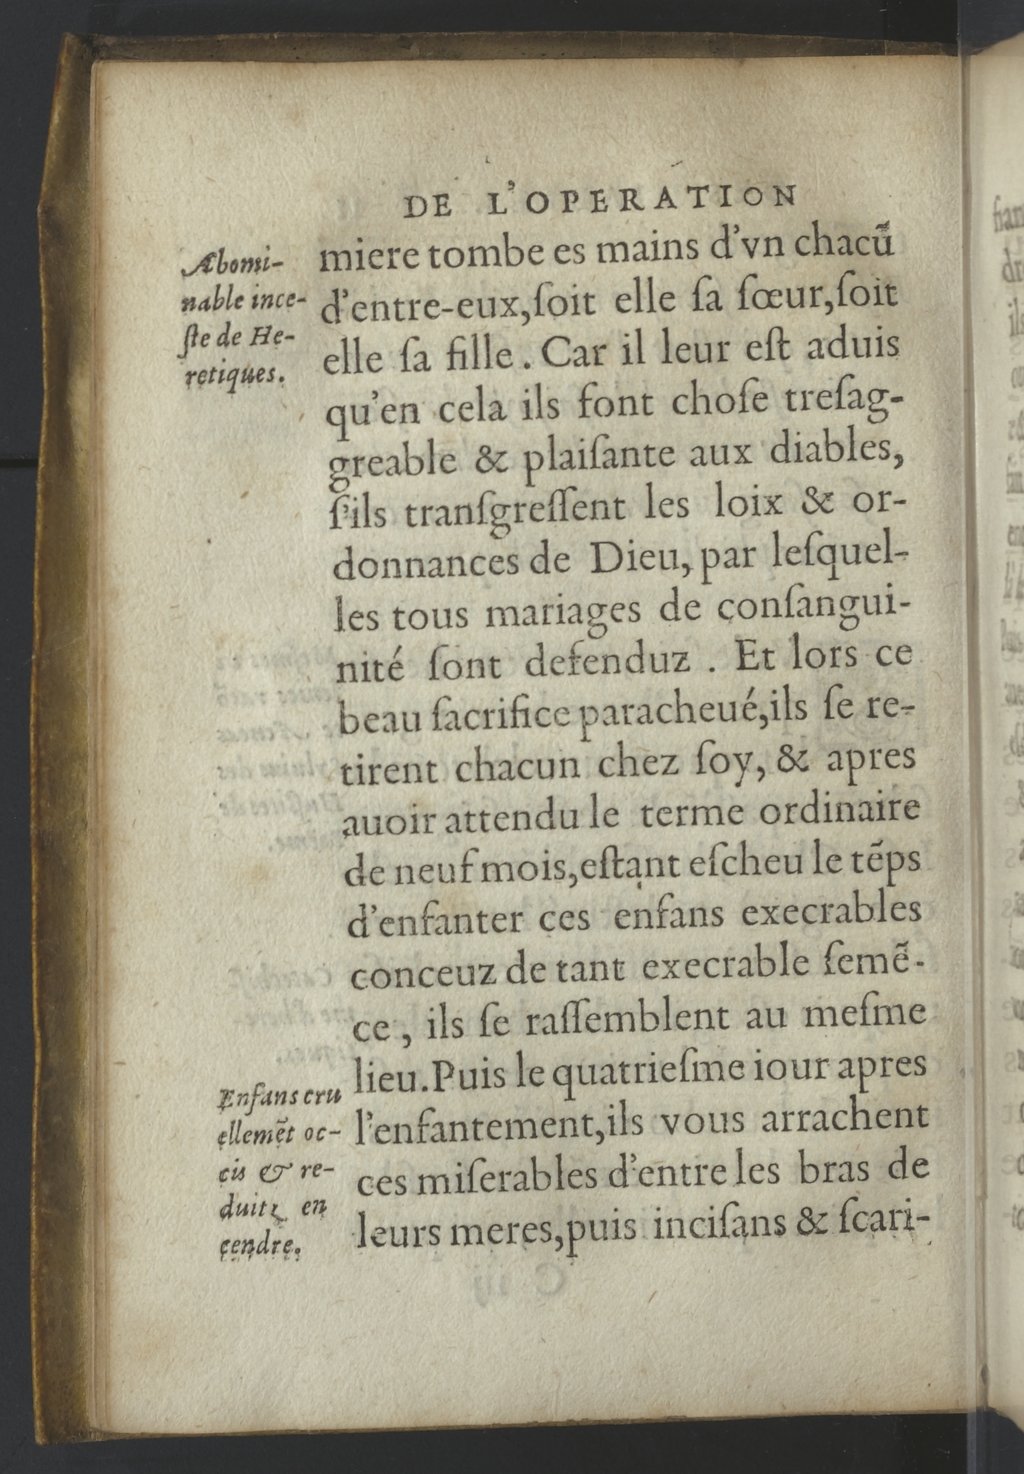 DE L'OPERATION
Abomi-
nable ince-
ste de He-
retiques.
miere tombe es mains d'vn chacū
d'entre-eux,ſoit elle ſa ſœur,ſoit
elle ſa fille. Car il leur eſt aduis
qu'en cela ils font choſe treſag-
greable & plaiſante aux diables,
ſ'ils tranſgreſſent les loix & or-
donnances de Dieu, par leſquel-
les tous mariages de conſangui-
nité ſont defenduz . Et lors ce
beau ſacrifice paracheué,ils ſe re-
tirent chacun chez ſoy, & apres
auoir attendu le terme ordinaire
de neuf mois,eſtant eſcheu le tẽps
d'enfanter ces enfans execrables
conceuz de tant execrable ſemẽ-
ce, ils ſe raſſemblent au meſme
lieu.Puis le quatrieſme iour apres
l'enfantement,ils vous arrachent
ces miſerables d'entre les bras de
leurs meres,puis inciſans & ſcari-
Enfans cru
ellemẽt oc-
cis & re-
duitz en
cendre.